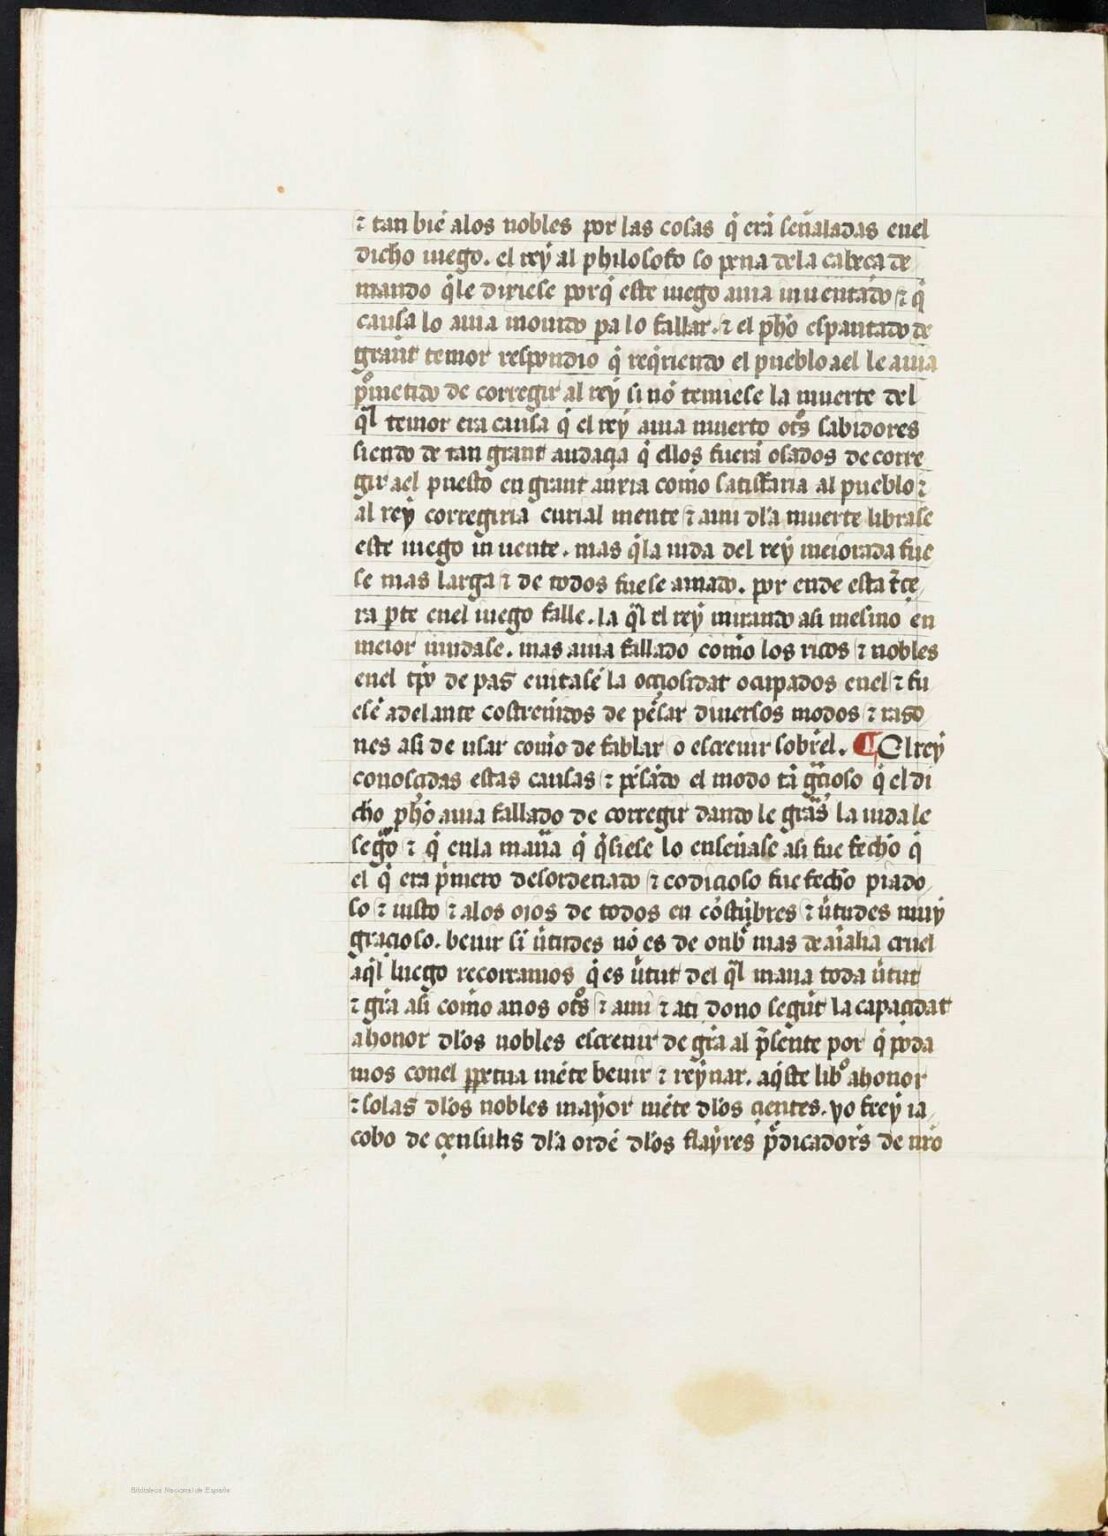 ⁊ tan bie᷆ alos nobles por las cosas q̃ erã señaladas enel
dicho iuego. el rey al philosofo so pena dela cabeca de
mando q̃le dixiese porq̃ este iuego auia inuentado ⁊ q̃
causa lo auia mouido pa lo fallar. ⁊ el ph̃o espantado de
grant temor respondio q̃ req̃riendo el pueblo ael le auia
pͦmetido de corregir al rey si nõ temiese la muerte del
q̃l temor era causa q̃ el rey auia muerto otͦs sabidores
siendo de tan grant audaçia q̃ ellos fuerã osados de corre
gir ael puesto en grant anxia como satisfaria al pueblo ⁊
al rey corregiria curial mente ⁊ ami dl̃a muerte librase
este iuego in uente. mas q̃la uida del rey meiorada fue
se mas larga ⁊ de todos fuese amado. por ende esta t̃çe,
ra p̱te enel iuego falle. la q̃l el rey mirando asi mesmo en
meior mudase. mas auia fallado como los ricos ⁊ nobles
enel tp̃o de pas euitasẽ la oçiosidat ocupados enel ⁊ fu
esẽ adelante costrenidos de pẽsar diuersos modos ⁊ raso
nes asi de usar como de fablar o escreuir sobrel. ¶ El rey
conosçidas estas causas ⁊ pẽsãdo el modo tã gͣçioso q̃ el di
cho ph̃o auia fallado de corregir dando le grãs la uida le
segͦ ⁊ q̃ enla maña q̃ q̃siese lo enseñase asi fue fecho q̃
el q̃ era p̃mero desordenado ⁊ codiçioso fue fecho piado,
so ⁊ iusto ⁊ alos oios de todos en cõstũbres ⁊ ũtudes muy
graçioso. beuir sĩ ũtudes nõ es de onbͤ mas de aĩalia cruel
aq̃l luego recorramos q̃ es ũtut del q̃l mana toda ũtut
⁊ grã asi como anos otͦs ⁊ ami ⁊ ati dono segũt la capaçidat
ahonor dl̃os nobles escreuir de grã al p̃sente por q̃ poda
mos conel ꝑpetua mẽte beuir ⁊ reynar. aq̃ste libͦ ahonor
⁊ solas dl̃os nobles mayor mẽte dl̃os çientes. yo frey ia,
cobo de çensulis dl̃a ordẽ dl̃os flayres p̃dicadors de nrõ
Biblioteca Nacional de España